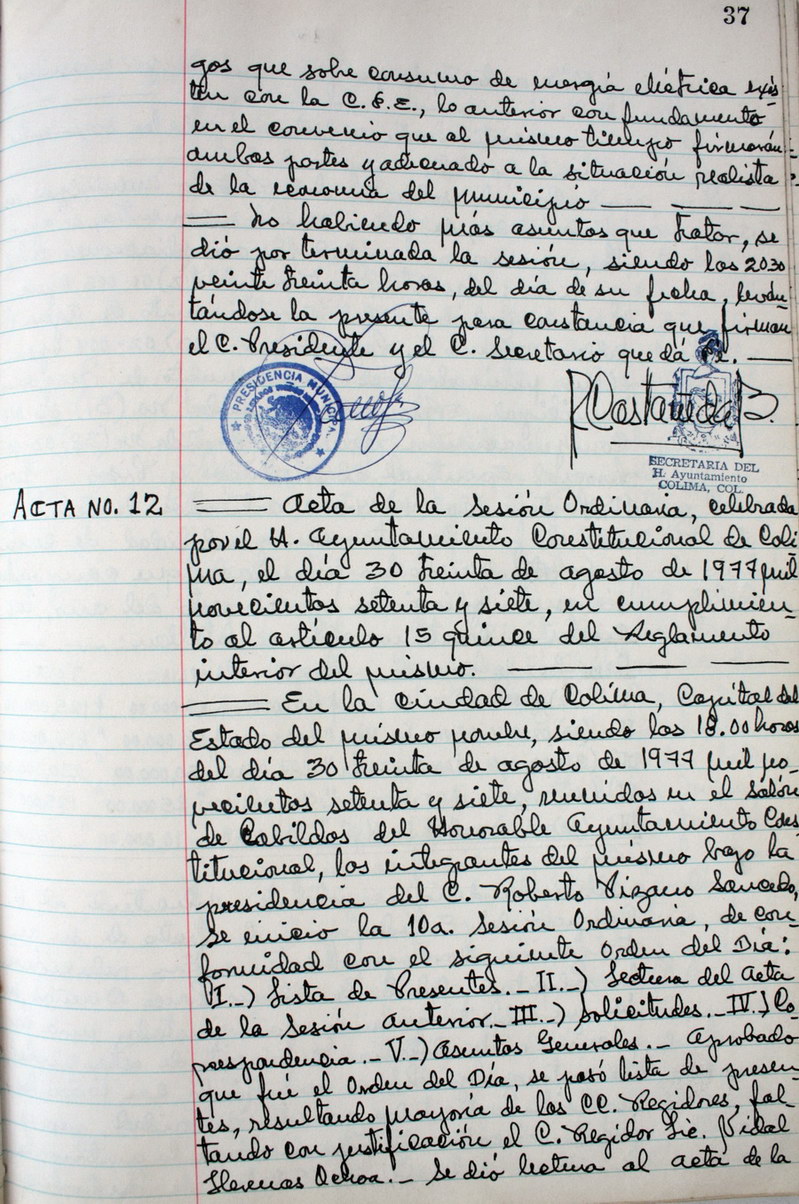 37
gos que sobre consumo de energía eléctrica exis-
ten con la C.F.E., lo anterior con fundamento
en el convenio que al mismo tiempo firmarán
ambas partes y adecuado a la situación realista
de la economía del municipio
No habiendo más asuntos que tratar, se
dió por terminada la sesión, siendo las 2030
veinte treinta horas, del día de su fecha, levan-
tándose la presente para constancia que firman
el C. Presidente y el C. Secretario que dá fé.
PRESIDENCIA MUNICIPAL
Castañeda B.
SECRETARIA DEL
H. Ayuntamiento
COLIMA, COL.
ACTA NO. 12
Acta de la Sesión Ordinaria, celebrada
por el H. Ayuntamiento Constitucional de Coli
ma, el día 30 treinta de agosto de 1977 mil
novecientos setenta y siete, en cumplimien-
to al artículo 15 quince del Reglamento
interior del mismo.
En la ciudad de Colima, Capital del
Estado del mismo nombre, siendo las 18.00 horas
del día 30 treinta de agosto de 1977 mil no-
vecientos setenta y siete, reunidos en el Salón
de Cabildos del Honorable Ayuntamiento Cons
titucional, los integrantes del mismo bajo la
presidencia del C. Roberto Pizano Saucedo,
se inició la 10a. Sesión Ordinaria, de con-
formidad con el siguiente Orden del Día:
I.-) Lista de Presentes.- II.-) Lectura del Acta
de la Sesión anterior.- III.-) Solicitudes.- IV.-) Co-
rrespondencia.- V.-) Asuntos Generales.- Aprobado
que fué el Orden del Día, se pasó lista de presen-
tes, resultando mayoría de los CC. Regidores, fal-
tando con justificación el C. Regidor Lic. Vidal
Llerenas Ochoa.- Se dió lectura al acta de la